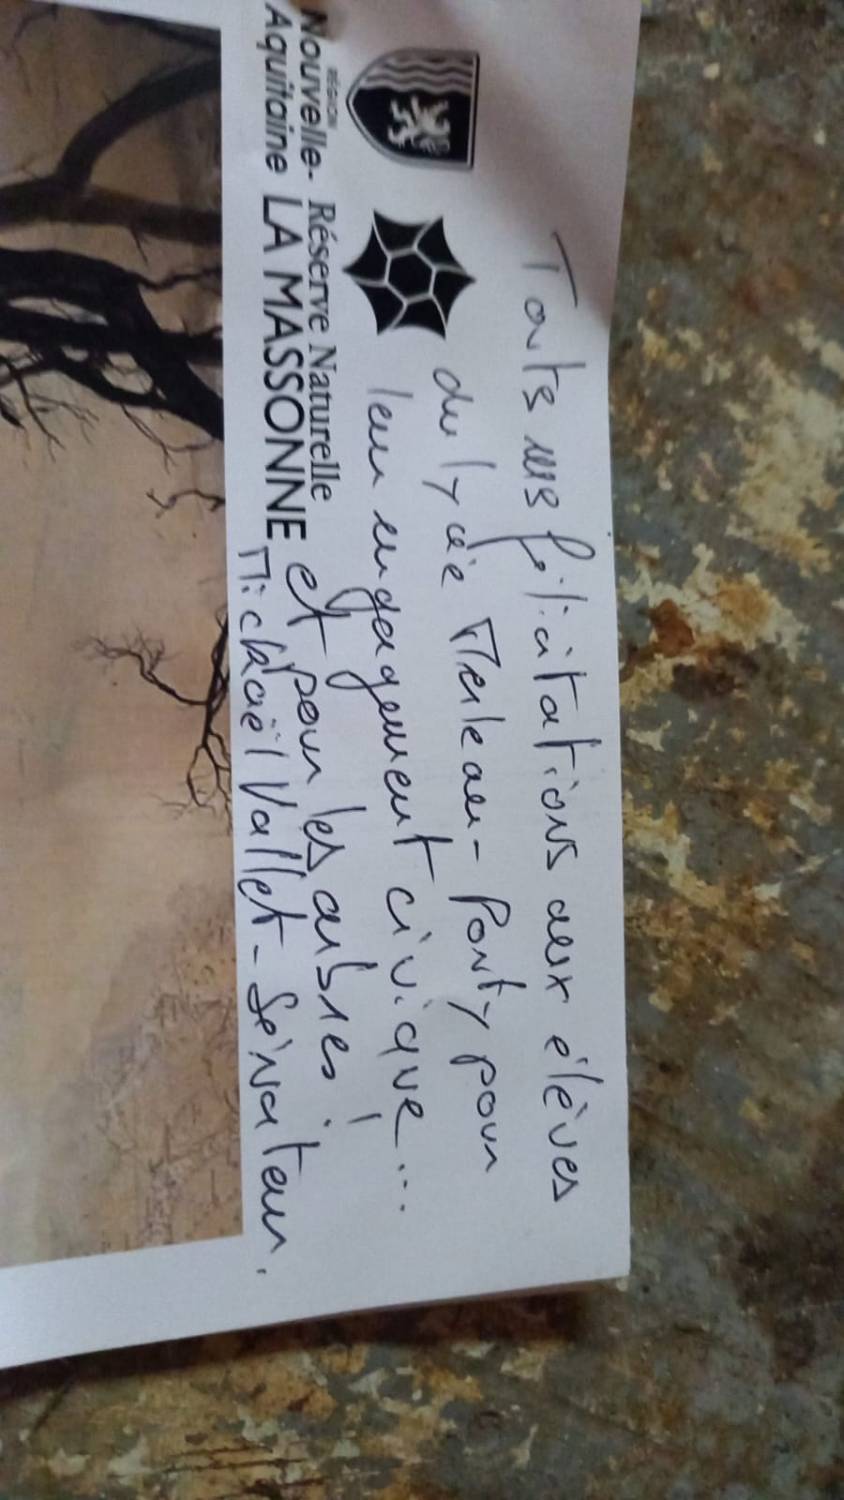 Toutes mes félicitations aux élèves
du lycée Merleau-Ponty pour
leur engagement civique...
et pour les arbres !
Mickaël Vallet - Sénateur.
RÉGION
Nouvelle-
Aquitaine
Réserve Naturelle
LA MASSONNE